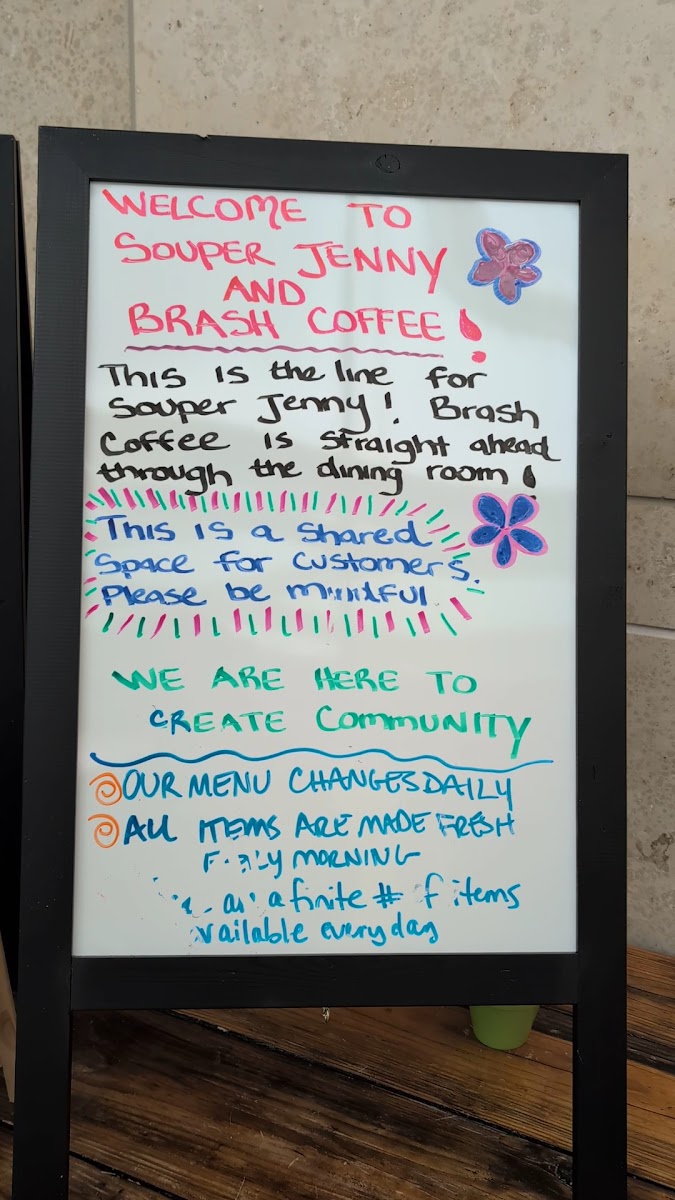 WELCOME TO
SOUPER JENNY
AND
BRASH COFFEE!
This is the line for
Souper Jenny! Brash
Coffee is straight ahead
through the dining room!
This is a shared
Space for customers.
Please be mindful
WE ARE HERE TO
CREATE COMMUNITY
OUR MENU CHANGES DAILY
ALL ITEMS ARE MADE FRESH
MORNING
a finite # f items
vailable everyday